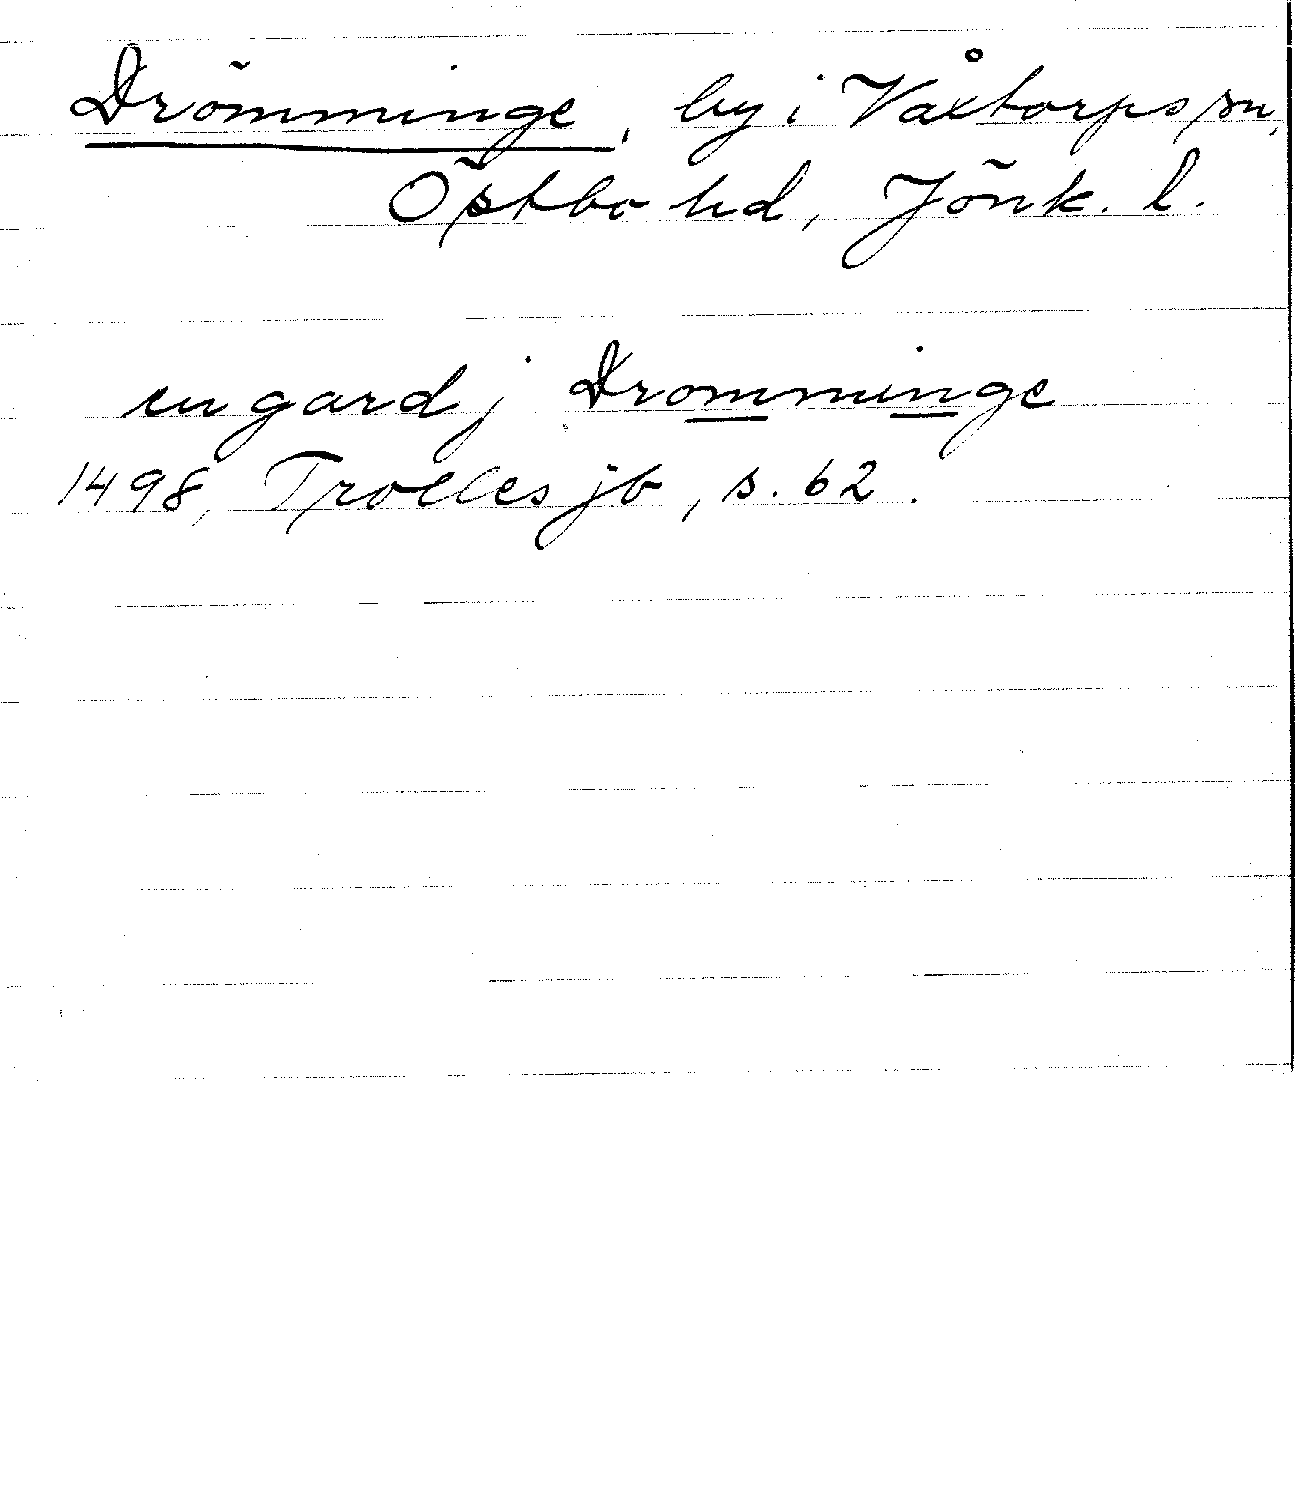 Drömminge, by i Våxtorps sn,
Östbo hd, Jönk. l.
en gard j Dromminge
1498, Trolles jb, s. 62.